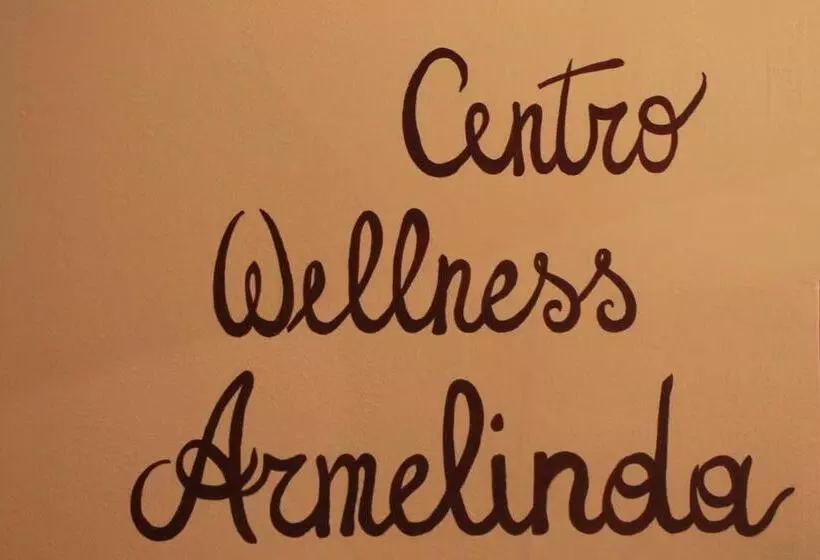 Centro
Wellness
Armelinda